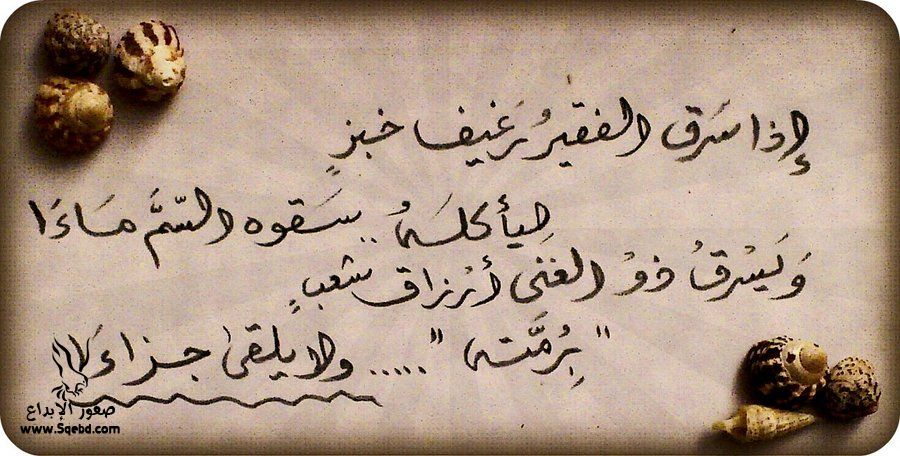 إذا سَرق الفقيرُ رَغيفا خبزٍ
ليأكلَهُ.. سَقوه السّمَّ مَاءَا
وَيَسْرقُ ذوُ الغنى أرْزاق شعبٍ
"بِرُمَّته" ..... ولا يلقى جزاءَا
صقور الإبداع
www.Sqebd.com